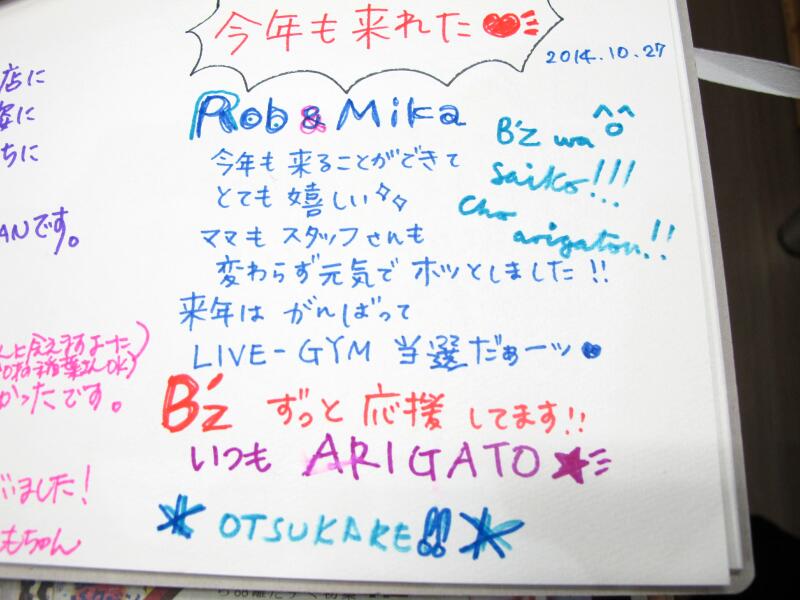 今年も来れた
2014.10.27
Rob & Mika
今年も来ることができて
とても嬉しい
ママもスタッフさんも
変わらず元気でホッとしました!!
来年はがんばって
LIVE-GYM 当選だぁーッ
B'z ずっと応援してます!!
いつも ARIGATO
OTSUKARE!!
B'z wa
saiko!!!
Cho
arigatou!!
店に
姿に
ちに
ANです。
かったです。
いました!
もちゃん